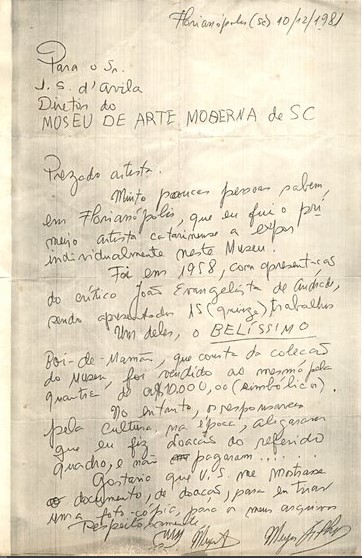 Florianópolis (SC) 10/12/1981
Para o Sr.
J. S. d'avila
Diretor do
MUSEU DE ARTE MODERNA de SC
Prezado artista.
Muito poucas pessoas sabem,
em Florianópolis, que eu fui o pri
meiro artista catarinense a expor
individualmente neste Museu.
Foi em 1958, com apresentação
do crítico João Evangelista de Andrade,
sendo apresentados 15 (quinze) trabalhos
Um deles, o BELÍSSIMO
Boi-de-Mamão, que consta da coleção
do Museu, foi vendido ao mesmo pela
quantia de 10.000,00 (simbólicos).
No entanto, os responsáveis
pela cultura, na época, alegaram
que eu fiz doação do referido
quadro, e não pagaram......
Gostaria que V.S. me mostrasse
o documento, de doação, para eu tirar
uma foto-cópia, para os meus arquivos
Respeitosamente